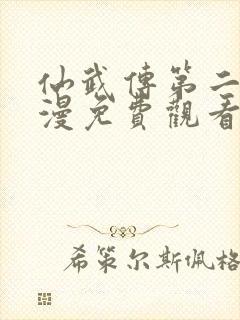 仙武傳第二
漫免費觀看
希策尔斯佩格